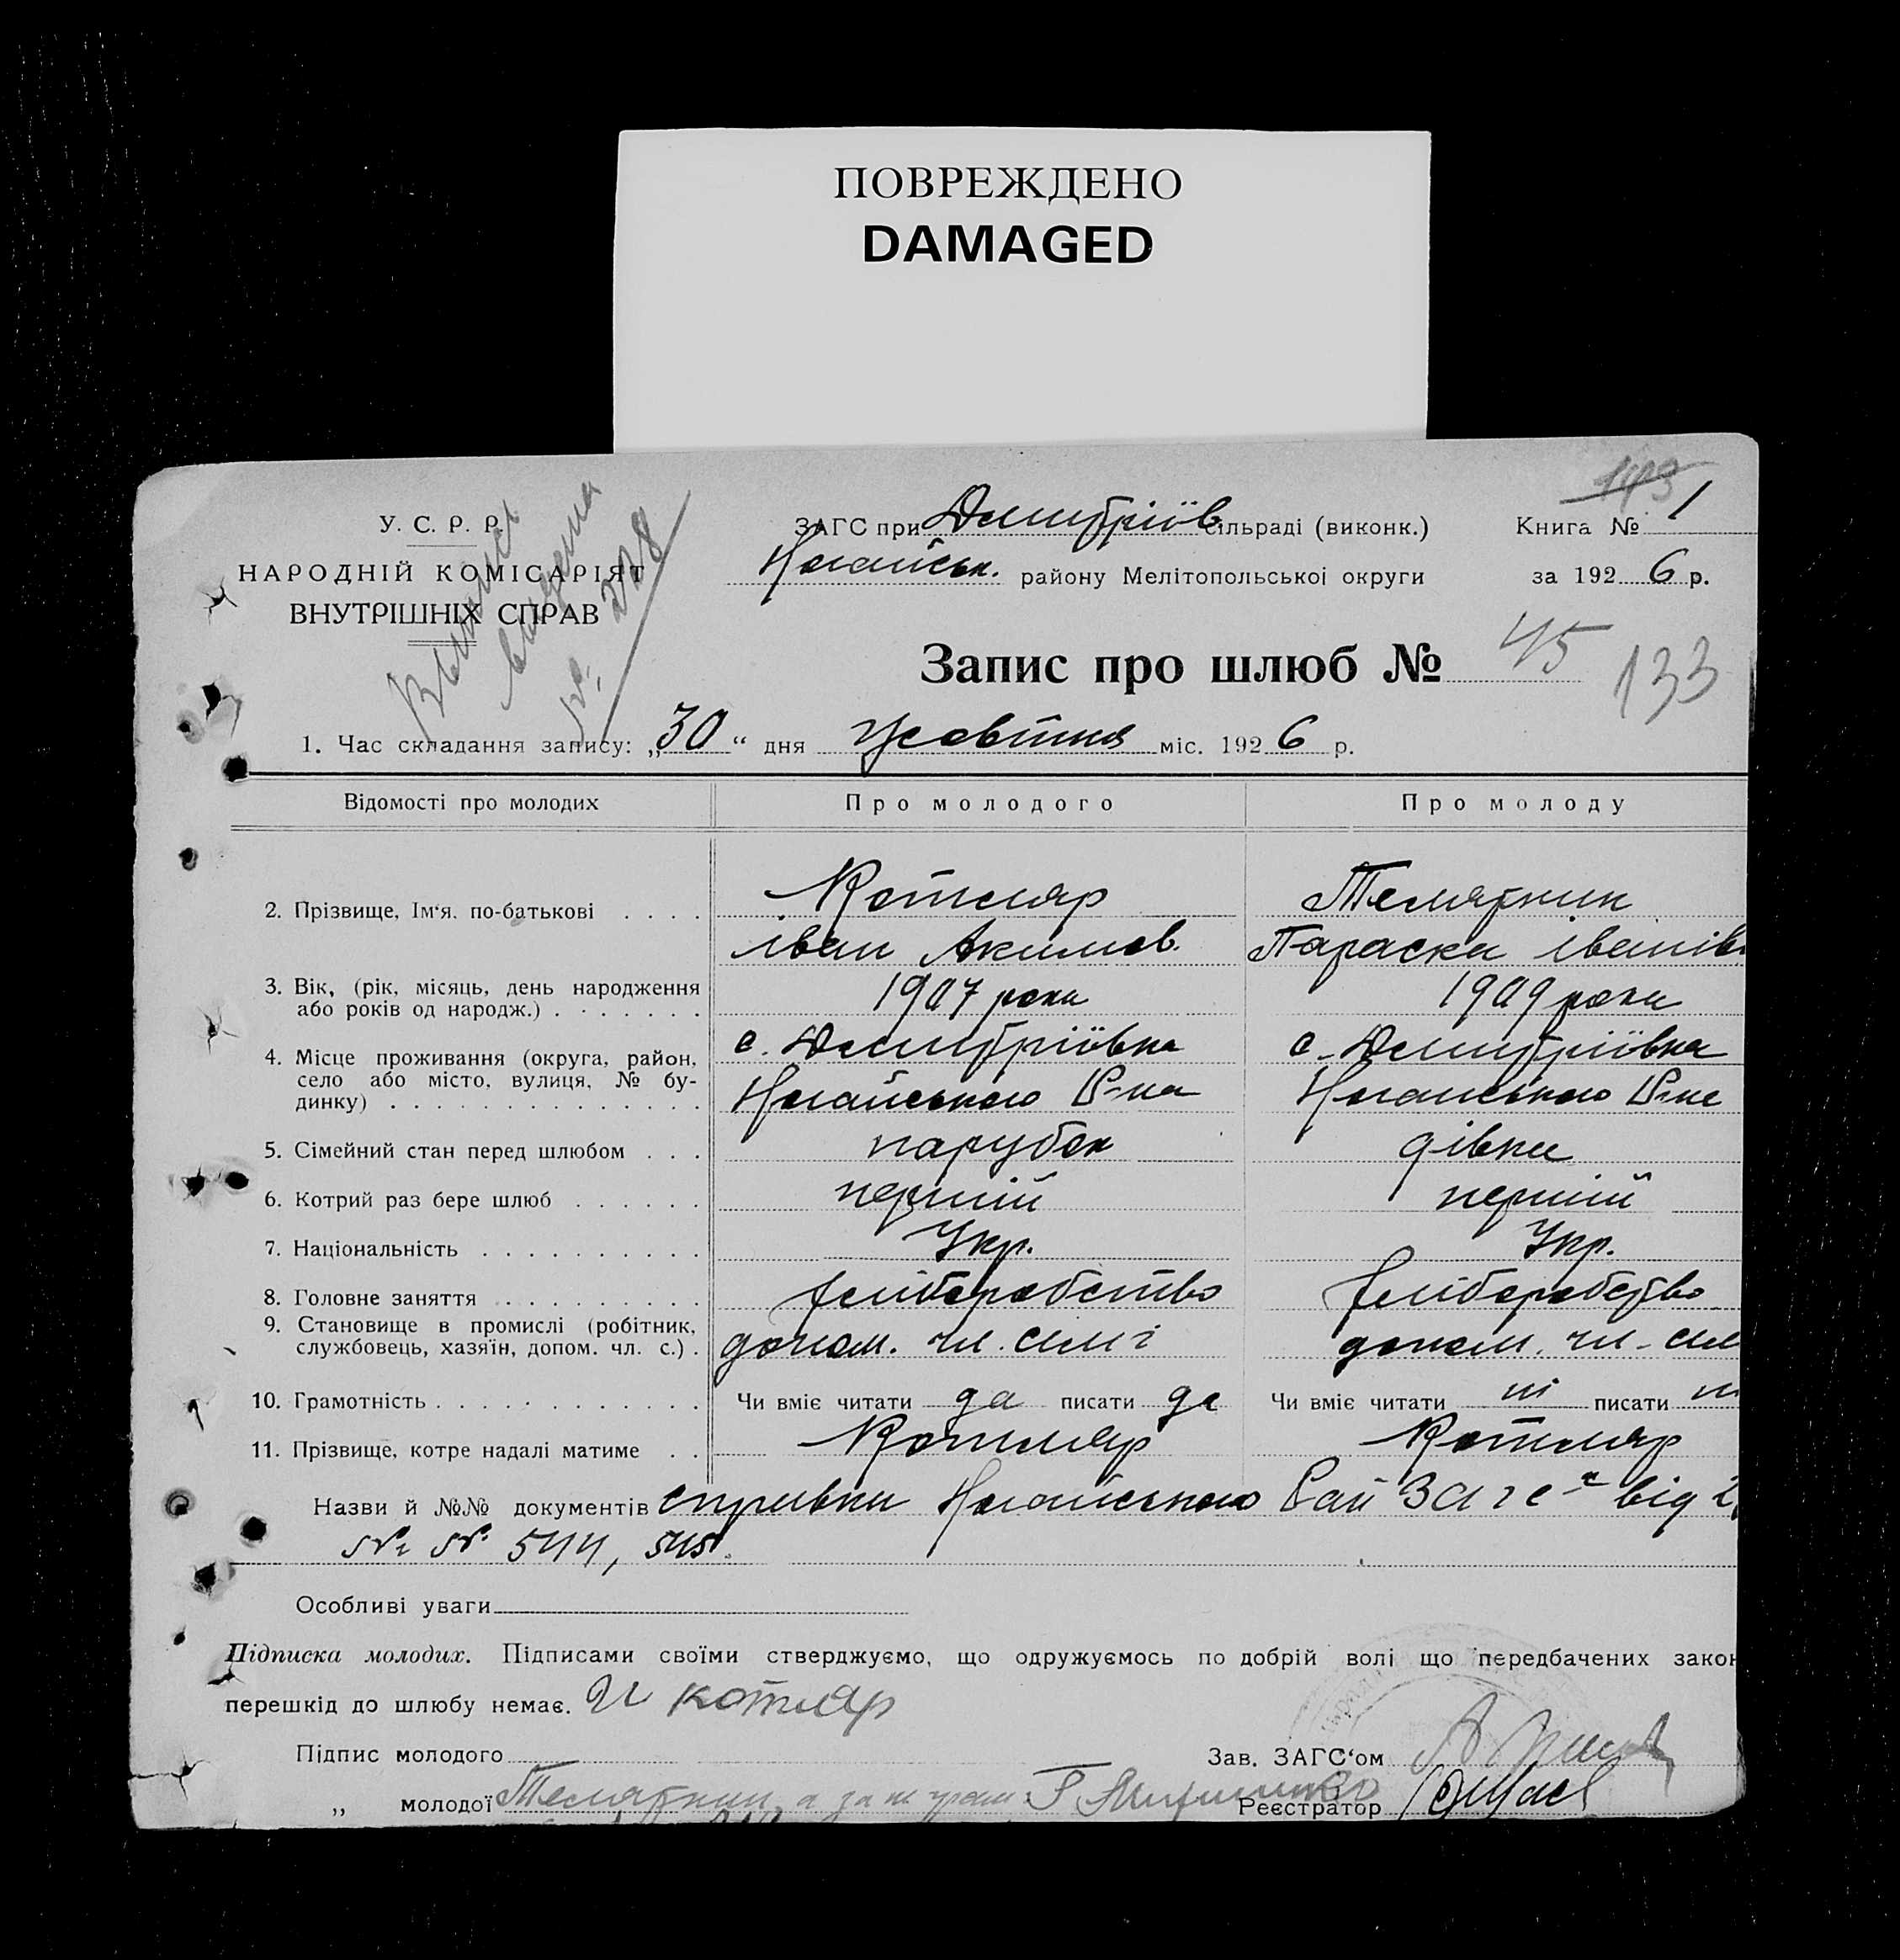 ПОВРЕЖДЕНО
DAMAGED
193
У. С. Р. Р.
НАРОДНІЙ КОМІСАРІЯТ
ВНУТРІШНІХ СПРАВ
№ 228
ЗАГС при Дмитріїв. сільраді (виконк.) Книга № 1
Ногайськ. району Мелітопольської округи за 1926 р.
Запис про шлюб № 45 133
1. Час складання запису: „30“ дня Жовтня міс. 1926 р.
Відомості про молодих Про молодого Про молоду
2. Прізвище, Ім'я, по-батькові . . . . Котляр Темятник
Іван Акимов. Параска Іванів
3. Вік, (рік, місяць, день народження 1907 роки 1909 роки
або років од народж.) . . . . . . .
с. Дмитріївка с. Дмитріївка
4. Місце проживання (округа, район,
село або місто, вулиця, № бу- Ногайського Р-на Ногайського Р-на
динку) . . . . . . . . . . . . . .
5. Сімейний стан перед шлюбом . . . парубок дівка
6. Котрий раз бере шлюб . . . . . . перший перший
7. Національність . . . . . . . . . . Укр. Укр.
8. Головне заняття . . . . . . . . . хліборобство хліборобство
9. Становище в промислі (робітник,
службовець, хазяїн, допом. чл. с.) . допом. чл. сім'ї допом. чл. сім
10. Грамотність . . . . . . . . . . . . Чи вміє читати да писати да Чи вміє читати ні писати ні
11. Прізвище, котре надалі матиме . . Котляр Котляр
Назви й №№ документів справки Ногайського Рай ЗАГС-а від 2
№ № 544, 545.
Особливі уваги
Підписка молодих. Підписами своїми стверджуємо, що одружуємось по добрій волі що передбачених закон
перешкід до шлюбу немає. И Котляр
Підпис молодого Зав. ЗАГС'ом
„ молодої Темятник а за неграм. Реєстратор